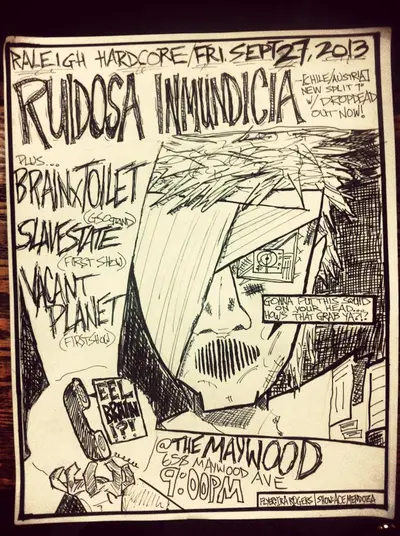 RALEIGH HARDCORE/FRI. SEPT 27, 2013
RUIDOSA INMUNDICIA
[CHILE/AUSTRIA]
NEW SPLIT 7"
W/ DROPDEAD
OUT NOW!
PLUS...
BRAINXTOILET
(GSO BAND)
SLAVESTATE
(FIRST SHOW)
VACANT
PLANET
(FIRST SHOW)
GONNA PUT THIS SQUID
ON YOUR HEAD...
HOWS THAT GRAB YA?!?
EEL
BRAIN
?!?!
@THE MAYWOOD
658 MAYWOOD AVE
9:00PM
ROGERS | SHOW: ACE MENDOZA